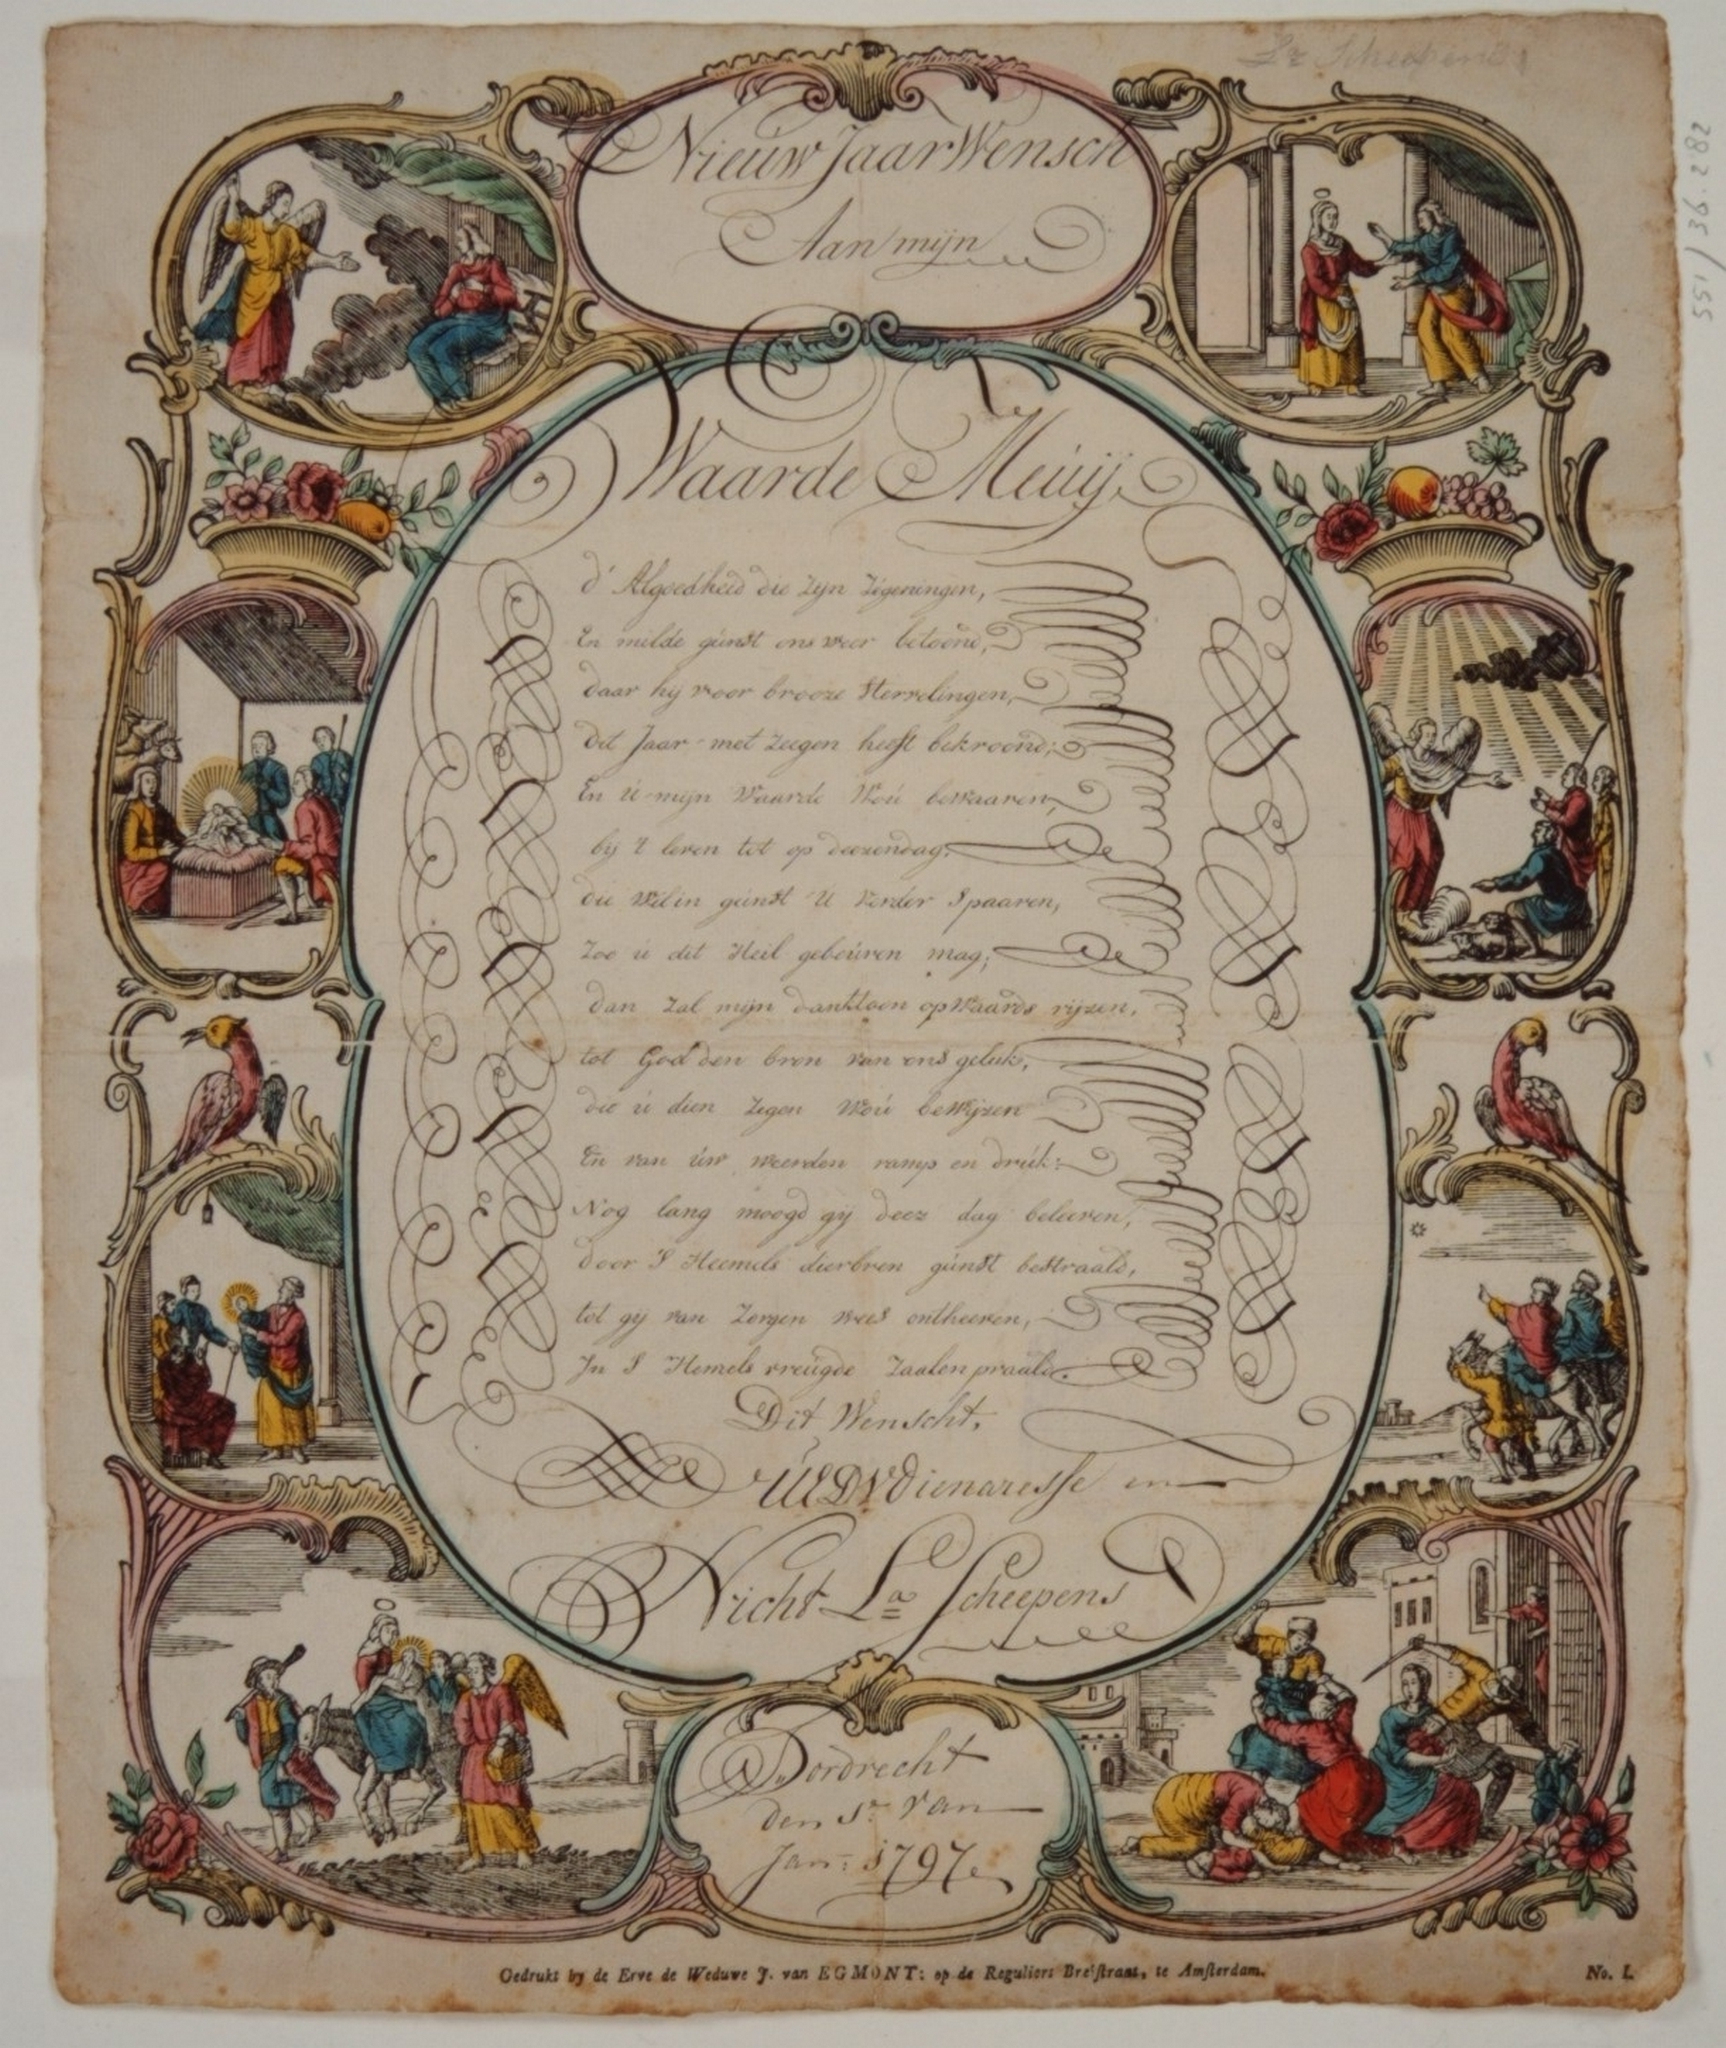 Nieuw Jaar Wensch
Aan mijn
Waarde Meüij
d' Algoedheid die Zijn Zegeningen,
En milde günst ons weer betoond,
daar hij voor brooze Stervelingen,
dit Jaar met Zeegen heeft bekroond;
En ü mijn Waarde Woü bewaaren,
bij 't leven tot op deezendag;
die Wil in günst U Verder Spaaren,
Zoo ü dit Heil gebeüren mag;
dan Zal mijn danktoon opWaards rijzen,
tot God den bron van ons gelük,
die ü dien Zegen Woü beWijzen
En van üw weerden ramp en drük:
Nog lang moogd gij deez dag beleeven,
door S Heemels dierbren günst bestraald,
tot gij van Zorgen vrees ontheeven,
In S Hemels vreügde Zaalen praald.
Dit Wenscht,
UEDW dienaresse en
Nicht La Scheepens
Dordrecht
den 1e van
Jan: 1797
Gedrukt by de Erve de Weduwe J. van EGMONT: op de Reguliers Breêstraat, te Amsterdam.
No. 1.
Scheepens
551/36.282